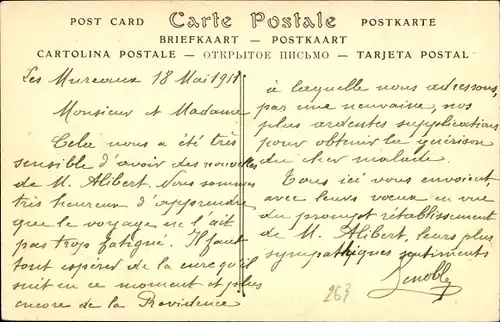 POST CARD Carte Postale POSTKARTE
BRIEFKAART — POSTKAART
CARTOLINA POSTALE — ОТКРЫТОЕ ПИСЬМО — TARJETA POSTAL
Les Mureaux 18 Mai 1911
Monsieur et Madame
Cela nous a été très
sensible d'avoir des nouvelles
de M. Alibert. Nous sommes
très heureux d'apprendre
que le voyage ne l'ait
pas trop fatigué. Il faut
tout espérer de la cure qu'il
suit en ce moment et plus
encore de la Providence
à laquelle nous adressons,
par une neuvaine, nos
plus ardentes supplications
pour obtenir la guérison
du cher malade.
Tous ici vous envoient,
avec leurs vœux en vue
du prompt rétablissement
de M. Alibert, leurs plus
sympathiques sentiments
Lenoble
263